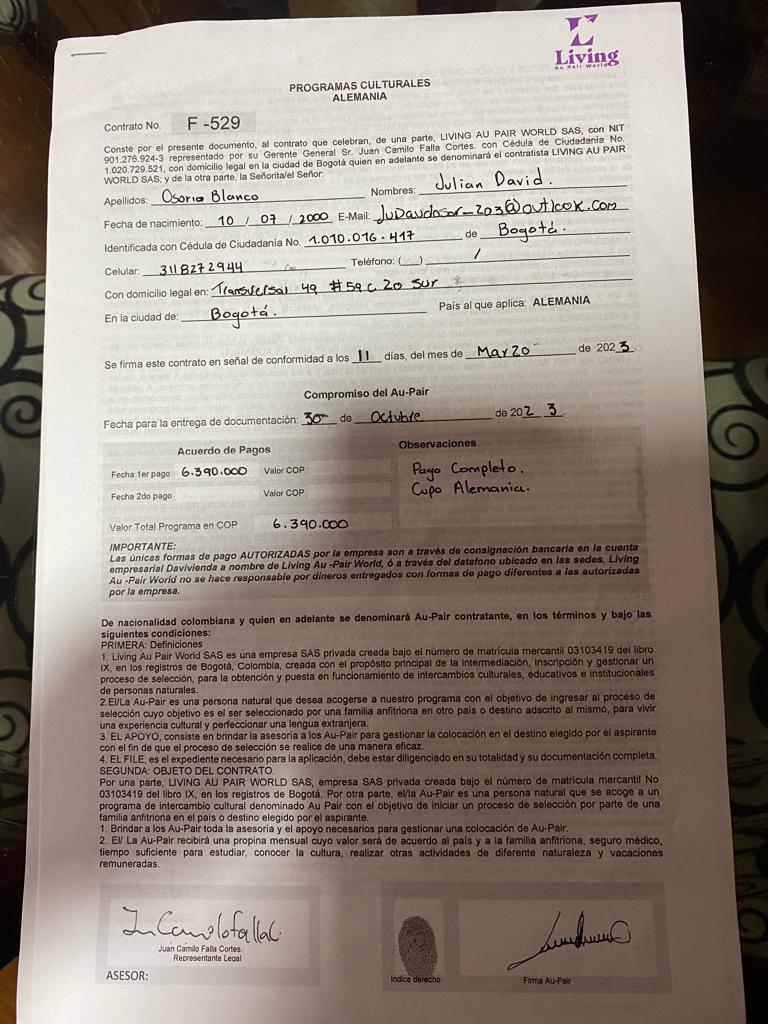 Living
Au Pair World
PROGRAMAS CULTURALES
ALEMANIA
Contrato No. F -529
Conste por el presente documento, al contrato que celebran, de una parte, LIVING AU PAIR WORLD SAS, con NIT
901.276.924-3 representado por su Gerente General Sr. Juan Camilo Falla Cortes. con Cédula de Ciudadanía No.
1.020.729.521, con domicilio legal en la ciudad de Bogotá quien en adelante se denominará el contratista LIVING AU PAIR
WORLD SAS; y de la otra parte, la Señorita/el Señor:
Apellidos: Osorio Blanco Nombres: Julian David.
Fecha de nacimiento: 10 / 07 / 2000 E-Mail: @outlook.com
Identificada con Cédula de Ciudadanía No. 1.010.016.417 de Bogotá.
Celular: 3118272944 Teléfono: (__) /
Con domicilio legal en: Transversal 49 #59 c 20 sur
En la ciudad de: Bogotá. País al que aplica: ALEMANIA
Se firma este contrato en señal de conformidad a los 11 días, del mes de Marzo de 2023.
Compromiso del Au-Pair
Fecha para la entrega de documentación: 30 de Octubre de 2023.
Acuerdo de Pagos Observaciones
Fecha 1er pago 6.390.000 Valor COP Pago Completo.
Fecha 2do pago Valor COP Cupo Alemania.
Valor Total Programa en COP 6.390.000
IMPORTANTE:
Las únicas formas de pago AUTORIZADAS por la empresa son a través de consignación bancaria en la cuenta
empresarial Davivienda a nombre de Living Au -Pair World, ó a través del datafono ubicado en las sedes. Living
Au -Pair World no se hace responsable por dineros entregados con formas de pago diferentes a las autorizadas
por la empresa.
De nacionalidad colombiana y quien en adelante se denominará Au-Pair contratante, en los términos y bajo las
siguientes condiciones:
PRIMERA: Definiciones
1. Living Au Pair World SAS es una empresa SAS privada creada bajo el número de matrícula mercantil 03103419 del libro
IX, en los registros de Bogotá, Colombia, creada con el propósito principal de la Intermediación, Inscripción y gestionar un
proceso de selección, para la obtención y puesta en funcionamiento de intercambios culturales, educativos e institucionales
de personas naturales.
2.El/La Au-Pair es una persona natural que desea acogerse a nuestro programa con el objetivo de ingresar al proceso de
selección cuyo objetivo es el ser seleccionado por una familia anfitriona en otro país o destino adscrito al mismo, para vivir
una experiencia cultural y perfeccionar una lengua extranjera.
3. EL APOYO, consiste en brindar la asesoría a los Au-Pair para gestionar la colocación en el destino elegido por el aspirante
con el fin de que el proceso de selección se realice de una manera eficaz.
4. EL FILE, es el expediente necesario para la aplicación, debe estar diligenciado en su totalidad y su documentación completa.
SEGUNDA: OBJETO DEL CONTRATO.
Por una parte, LIVING AU PAIR WORLD SAS, empresa SAS privada creada bajo el número de matrícula mercantil No
03103419 del libro IX, en los registros de Bogotá. Por otra parte, el/la Au-Pair es una persona natural que se acoge a un
programa de intercambio cultural denominado Au Pair con el objetivo de iniciar un proceso de selección por parte de una
familia anfitriona en el país o destino elegido por el aspirante.
1. Brindar a los Au-Pair toda la asesoría y el apoyo necesarios para gestionar una colocación de Au-Pair.
2. El/ La Au-Pair recibirá una propina mensual cuyo valor será de acuerdo al país y a la familia anfitriona, seguro médico,
tiempo suficiente para estudiar, conocer la cultura, realizar otras actividades de diferente naturaleza y vacaciones
remuneradas.
Juan Camilo Falla Cortes.
Representante Legal
ASESOR: Indice derecho Firma Au-Pair